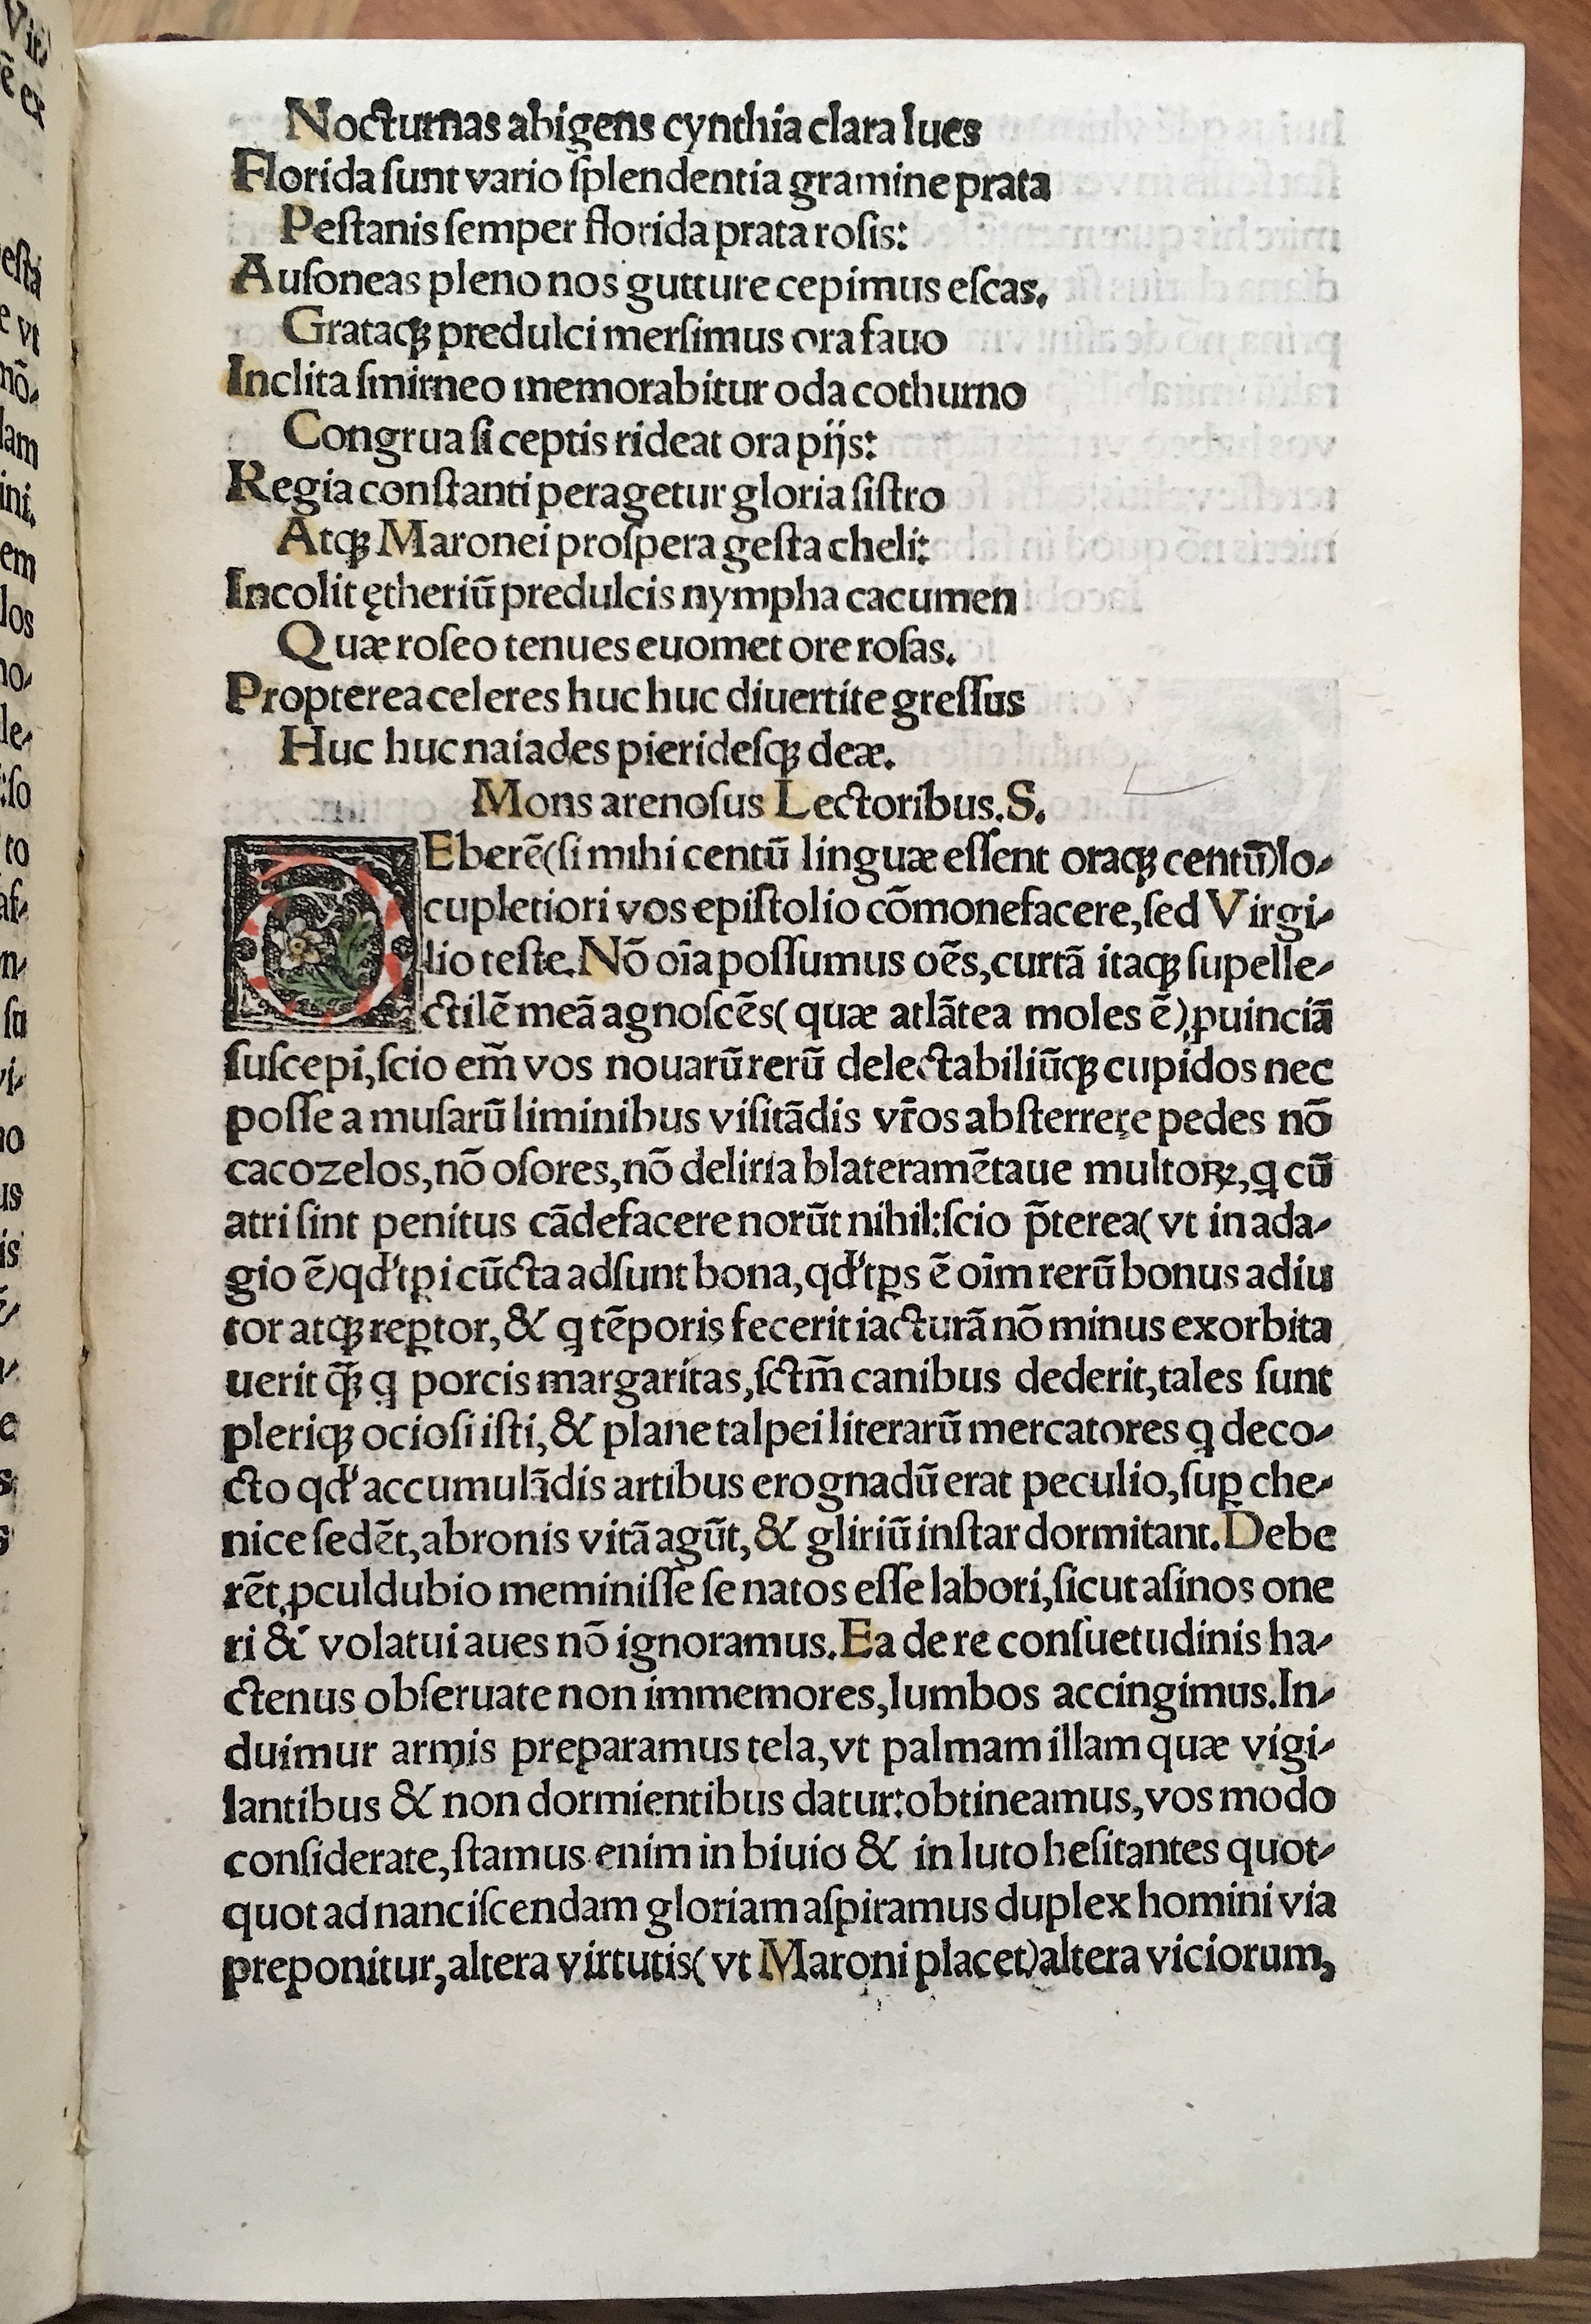 Nocturnas abigens cynthia clara lues
Florida ſunt vario ſplendentia gramine prata
Peſtanis ſemper florida prata roſis:
Auſoneas pleno nos gutture cepimus eſcas.
Grataqꝫ predulci merſimus ora fauo
Inclita ſmirneo memorabitur oda cothurno
Congrua ſi ceptis rideat ora pijs:
Regia conſtanti peragetur gloria ſiſtro
Atqꝫ Maronei proſpera geſta cheli:
Incolit ętheriū predulcis nympha cacumen
Quæ roſeo tenues euomet ore roſas.
Propterea celeres huc huc diuertite greſſus
Huc huc naiades pierideſqꝫ deæ.
Mons arenoſus Lectoribus.S.
DEberē(ſi mihi centū linguæ eſſent oraqꝫ centū)lo-
cupletiori vos epiſtolio cōmonefacere,ſed Virgi-
lio teſte.Nō oīa poſſumus oēs,curtā itaqꝫ ſupelle-
ctilē meā agnoſcēs(quæ atlātea moles ē),ꝓuinciā
ſuſcepi,ſcio em̄ vos nouarū rerū delectabiliūqꝫ cupidos nec
poſſe a muſarū liminibus viſitādis vr̄os abſterrere pedes nō
cacozelos,nō oſores,nō deliria blateramētaue multoꝝ,q cū
atri ſint penitus cādefacere norūt nihil:ſcio p̄terea(vt in ada-
gio ē)qd' tꝑi cūcta adſunt bona,qd' tꝑs ē oīm rerū bonus adiu
tor atqꝫ reꝑtor,& q tēporis fecerit iacturā nō minus exorbita
uerit q̄ꝫ q porcis margaritas,ſctm̄ canibus dederit,tales ſunt
pleriqꝫ ocioſi iſti,& plane talpei literarū mercatores q deco-
cto qd' accumulādis artibus erognadū erat peculio,ſuꝑ che-
nice ſedēt,abronis vitā agūt,& gliriū inſtar dormitant.Debe
rēt ꝓculdubio meminiſſe ſe natos eſſe labori,ſicut aſinos one
ri & volatui aues nō ignoramus.Ea de re conſuetudinis ha-
ctenus obſeruate non immemores,lumbos accingimus.In-
duimur armis preparamus tela,vt palmam illam quæ vigi-
lantibus & non dormientibus datur:obtineamus,vos modo
conſiderate,ſtamus enim in biuio & in luto heſitantes quot-
quot ad nanciſcendam gloriam aſpiramus duplex homini via
preponitur,altera virtutis(vt Maroni placet)altera viciorum,